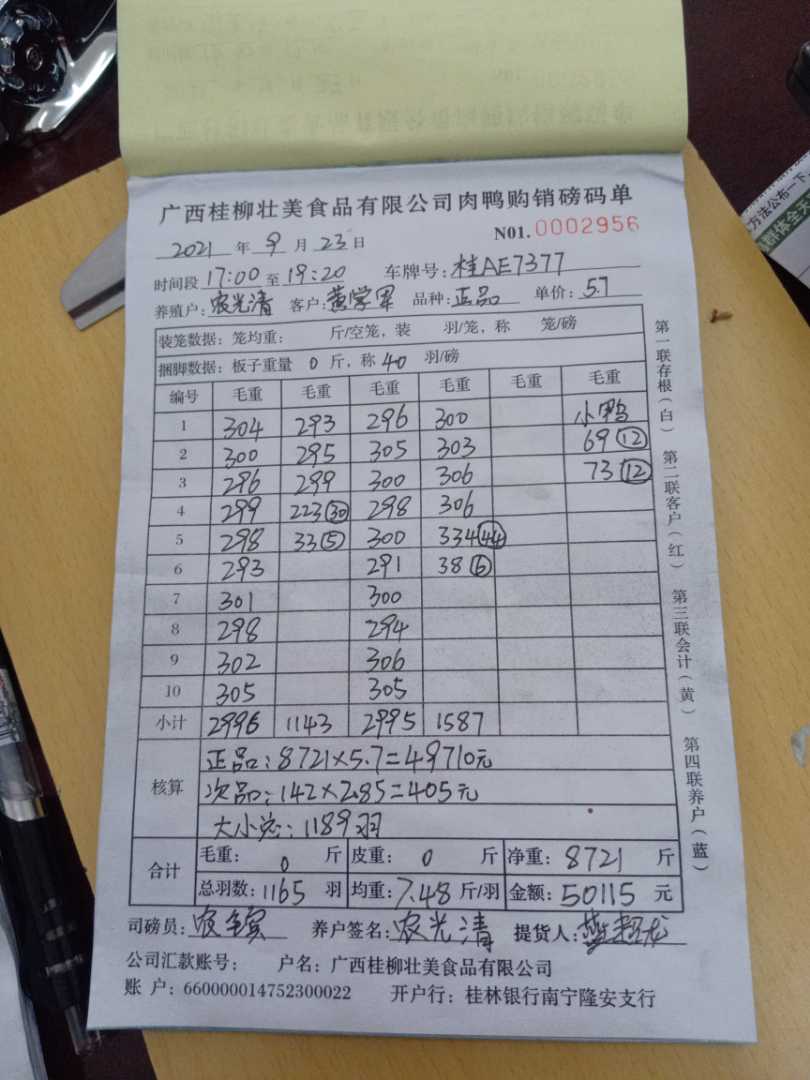 广西桂柳壮美食品有限公司肉鸭购销磅码单
2021 年 9 月 23 日 N01. 0002956
时间段 17:00 至 19:20 车牌号: 桂AE7377
养殖户: 农光清 客户: 黄学军 品种: 正品 单价: 5.7
装笼数据: 笼均重: 斤/空笼, 装 羽/笼, 称 笼/磅
捆脚数据: 板子重量 0 斤, 称 40 羽/磅
编号 毛重 毛重 毛重 毛重 毛重 毛重
1 304 293 296 300 小鸭
2 300 295 305 303 69 ⑫
3 296 299 300 306 73 ⑫
4 299 223 ㉚ 298 306
5 298 33 ⑤ 300 334 ㊹
6 293 291 38 ⑥
7 301 300
8 298 294
9 302 306
10 305 305
小计 2996 1143 2995 1587
核算
正品: 8721×5.7=49710元
次品: 142×2.85=405元
大小总: 1189羽
合计
毛重: 0 斤 皮重: 0 斤 净重: 8721 斤
总羽数: 1165 羽 均重: 7.48 斤/羽 金额: 50115 元
司磅员: 农 养户签名: 农光清 提货人: 龙
公司汇款账号: 户名: 广西桂柳壮美食品有限公司
账 户: 660000014752300022 开户行: 桂林银行南宁隆安支行
第一联存根(白) 第二联客户(红) 第三联会计(黄) 第四联养户(蓝)
方法公布一下